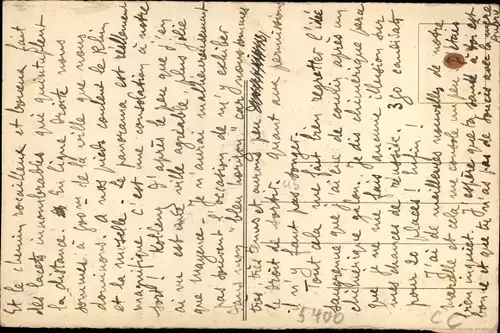 Et le chemin rocailleux et boueux fait
des lacets innombrables qui quintuplent
la distance. En ligne droite nous
sommes à 200m de la ville que nous
dominons. A nos pieds coulent le Rhin
et la Moselle. Le panorama est réellement
magnifique c'est une consolation à notre
sort! Koblenz d'après le peu que j'en
ai vu est une ville agréable plus jolie
que Mayence. Je n'aurai malheureusement
pas souvent l'occasion de m'y exhiber
dans mon "bleu horizon" car nous sommes
très, très tenus et aurons peu
le droit de sortir. Quant aux permissions
il n'y faut pas songer.
Tout cela me fait bien regretter l'idée
saugrenue que j'ai eue de courir après un
chimérique galon. Je dis chimérique parce
que je ne me fais aucune illusion sur
mes chances de réussite. 350 candidats
pour 20 places! Enfin!
J'ai de meilleures nouvelles de notre
marraine et cela me console un peu. J'étais
bien inquiet. J'espère que ta santé à toi est
bonne et que tu n'as pas de
5400
CC